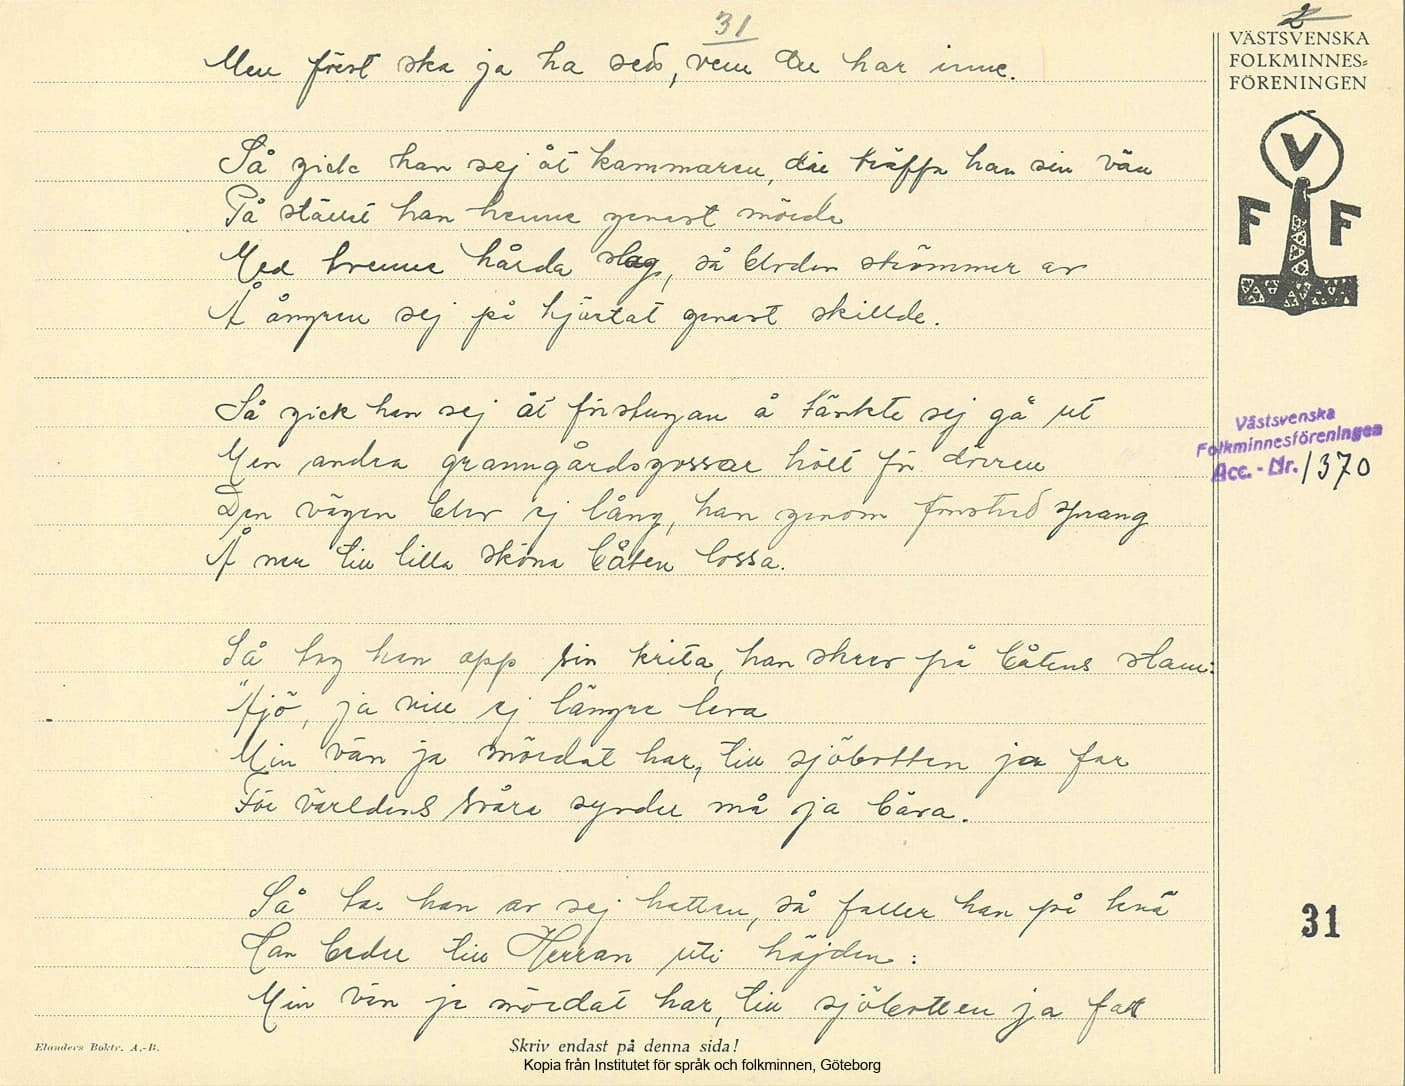 31
2
VÄSTSVENSKA
FOLKMINNES=
FÖRENINGEN
V
F F
Men först ska ja ha sedt, vem du har inne.
Så gick han sej åt kammaren, där träffa han sin vän
På stället han henne genast mörda
Med trenne hårda slag, så bloden strömmer av
Å ångren sej på hjärtat genast skillde.
Så gick han sej åt förstugan å tänkte sej gå ut
Men andra granngårdsgossar höll för dörren
Den vägen blev ej lång, han genom fönstred sprang
Å ner till lilla sköna båten lossa.
Västsvenska
Folkminnesföreningen
Acc. - Nr. 1370
Så tog han opp sin krita, han skrev på båtens stam:
"Ajö, ja vill ej längre leva
Min vän ja mördat har, till sjöbotten ja far
För världens svåra synder må ja bära.
Så tar han av sej hatten, så faller han på knä
Han beder till Herran uti höjden:
Min vän ja mördat har, till sjöbotten ja fatt
31
Elanders Boktr. A.-B.
Skriv endast på denna sida!
Kopia från Institutet för språk och folkminnen, Göteborg